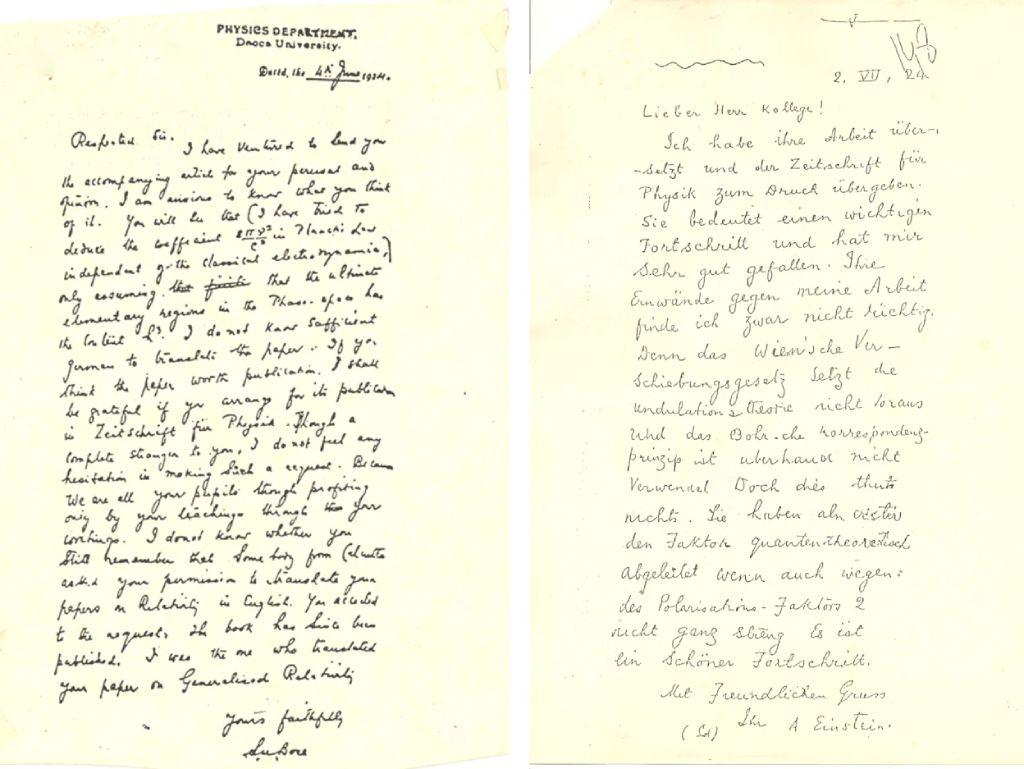 PHYSICS DEPARTMENT,
Dacca University.
Dated, the 4th June 1924.
Respected Sir. I have ventured to send you
the accompanying article for your perusal and
opinion. I am anxious to know what you think
of it. You will see that (I have tried to
deduce the coefficient 8πν²/c³ in Planck's Law
independent of the classical electrodynamics,)
only assuming that the ultimate
elementary regions in the Phase-space has
the content h³. I do not know sufficient
german to translate the paper. If you
think the paper worth publication, I shall
be grateful if you arrange for its publication
in Zeitschrift für Physik. Though a
complete stranger to you, I do not feel any
hesitation in making such a request. Because
We are all your pupils though profiting
only by your teachings through your
writings. I donot know whether you
still remember that Somebody from Calcutta
asked your permission to translate your
papers on Relativity in English. You acceded
to the request. The book has since been
published. I was the one who translated
your paper on Generalised Relativity
Yours faithfully
S.N. Bose
2. VII, 24
Lieber Herr Kollege!
Ich habe ihre Arbeit über-
-setzt und der Zeitschrift für
Physik zum Druck übergeben.
Sie bedeutet einen wichtigen
Fortschritt und hat mir
Sehr gut gefallen. Ihre
Einwände gegen meine Arbeit
finde ich zwar nicht richtig.
Denn das Wien'sche Ver-
Schiebungsgesetz Setzt die
undulations theorie nicht voraus
und das Bohr-che korrespondenz-
prinzip ist uberhaud nicht
Verwendet Doch dies thut
nichts. Sie haben als erster
den Faktor quanten-theoretisch
abgeleitet wenn auch wegen
des Polarisations-Faktors 2
nicht ganz streng Es ist
ein Schöner Fortschritt.
Mit Freundlichen Gruss
(Sd) Ihr A Einstein.